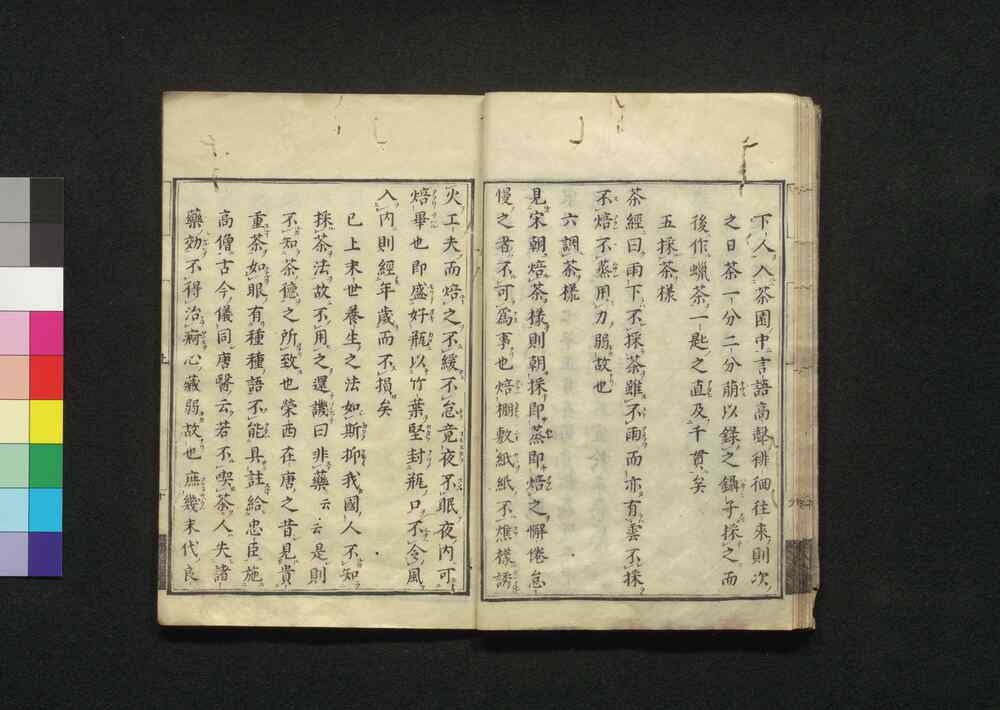 下人入茶園中言語高聲徘徊往來則次
之日茶一分二分萠以錄之鑷子採之而
後作蠟茶一匙之直及千貫矣
五採茶樣
茶經曰雨下不採茶雖不雨而亦有雲不採
不焙不蒸用力弱故也
六調茶樣
見宋朝焙茶樣則朝採即蒸即焙之懈倦怠
慢之者不可爲事也焙棚敷紙紙不燋樣誘
火工夫而焙之不緩不怠竟夜不眠夜内可
焙畢也即盛好瓶以竹葉堅封瓶口不令風
入内則經年歳而不損矣
已上末世養生之法如斯抑我國人不知
採茶法故不用之還譏曰非藥云云是則
不知茶德之所致也榮西在唐之昔見貴
重茶如眼有種種語不能具註給忠臣施
高僧古今儀同唐醫云若不喫茶人失諸
藥効不得治痾心藏弱故也庶幾末代良